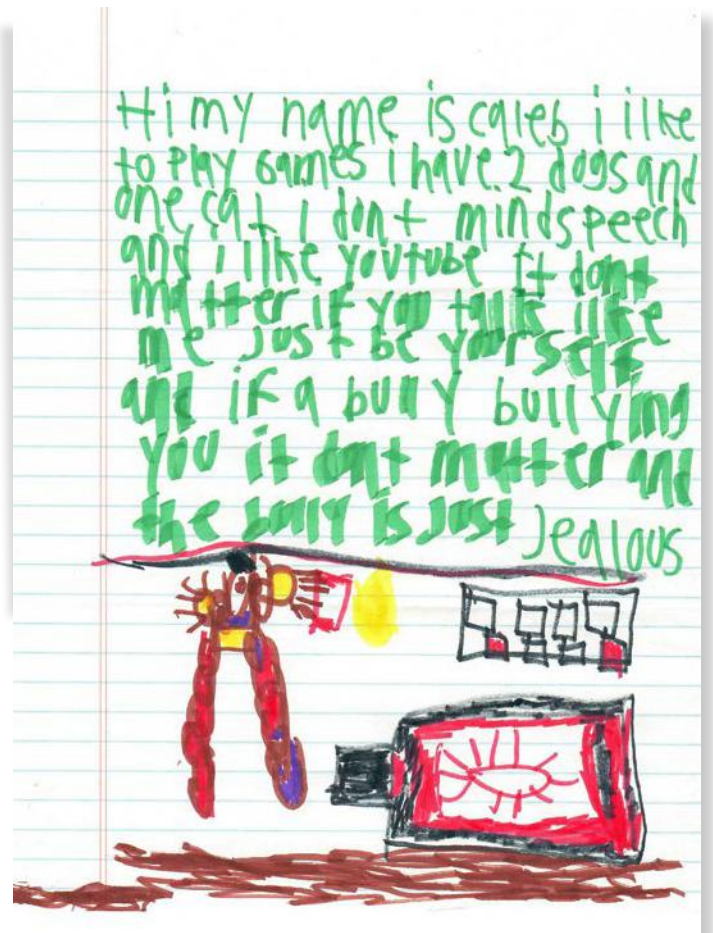 Hi my name is caleb i like
to play games i have 2 dogs and
one cat I don't mind speech
and i like youtube it dont
matter if you talk like
me just be yourself
and if a bully bullying
you it dont matter and
the bully is just Jealous